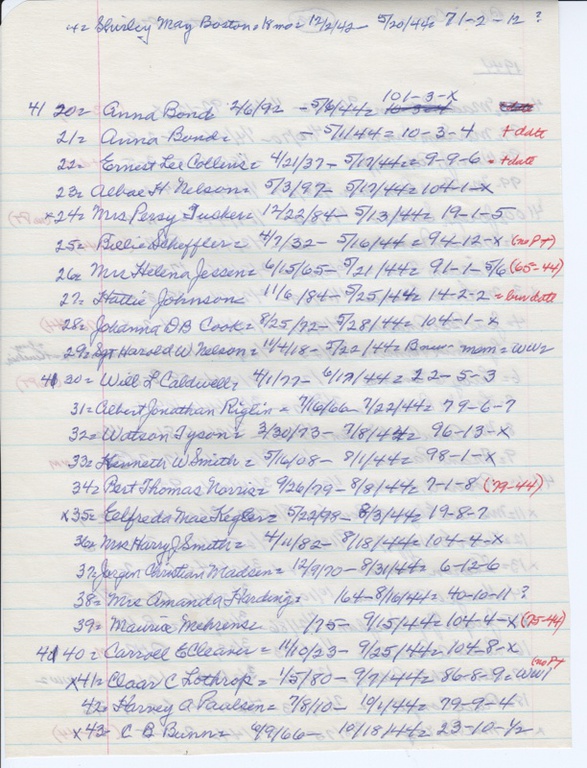 x= Shirley May Boston= 18 mo= 12/2/42- 5/20/44= 71-2-12 ?
101-3-x
41 20= Anna Bond 2/6/92 -5/6/44=
21= Anna Bond= -5/11/44= 10-3-4 +date
22= Ernest Lee Collins= 4/21/37- 5/17/44= 9-9-6 - +date
23= Albae H. Nelson= 5/3/97- 5/17/44= 104-1-x
x24= Mrs Perry Tusker= 12/22/84- 5/13/44= 19-1-5
25= Billie Scheffler= 4/7/32- 5/16/44= 94-12-x (no PT)
26= Mrs Helena Jessen= 6/15/65- 5/21/44= 91-1-5/6 (65-44)
27= Hattie Johnson= 11/6/84- 5/25/44= 14-2-2 = bur date
28= Johanna O B Cook= 8/25/72- 5/28/44= 104-1-x
29= Sgt Harold W Nelson= 11/4/18- 5/22/44= mem= WW2
41 30= Will L Caldwell= 4/1/77- 6/17/44= 22-5-3
31= Albert Jonathan Riglin= 7/16/66- 7/22/44= 79-6-7
32= Watson Tyson= 3/30/73- 7/8/44= 96-13-x
33= Kenneth W Smith= 5/16/08- 8/1/44= 98-1-x
34= Bert Thomas Norris= 9/26/79- 8/8/44= 7-1-8 (79-44)
x35= Eelfreda Mae Kepler= 5/22/98- 8/3/44= 19-8-7
36= Mrs Harry J Smith= 4/11/82- 8/18/44= 104-4-x
37= Jorgen Christian Madsen= 12/9/70- 8/31/44= 6-12-6
38= Mrs Amanda Harding= 164- 8/16/44= 40-10-11 ?
39= Maurice Mehrens= /75- 9/15/44= 104-4-x (75-44)
41 40= Carroll E Cleaver= 11/10/23- 9/25/44= 104-8-x
(no PT
x41= Claar C Lothrop= 1/5/80- 9/7/44= 86-8-9= WW1
42= Harvey A Paulsen= 7/8/10- 10/1/44= 79-9-4
x43= C B Bunn= 6/9/66- 10/18/44= 23-10-1/2